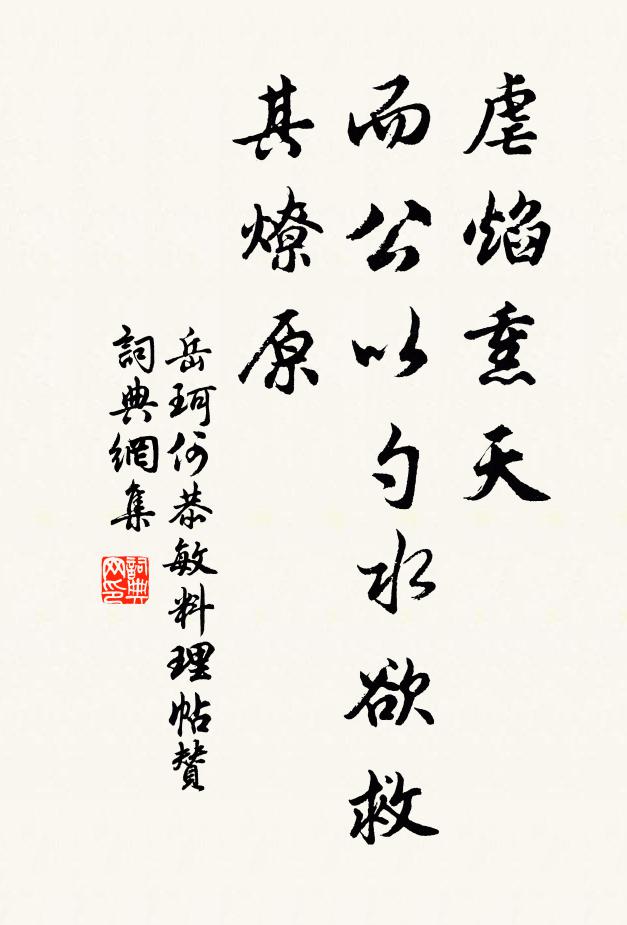 虐焰熏天
而公以勺水欲救
其燎原
岳珂何恭敏料理帖赞
詞典網集
詞典
网印